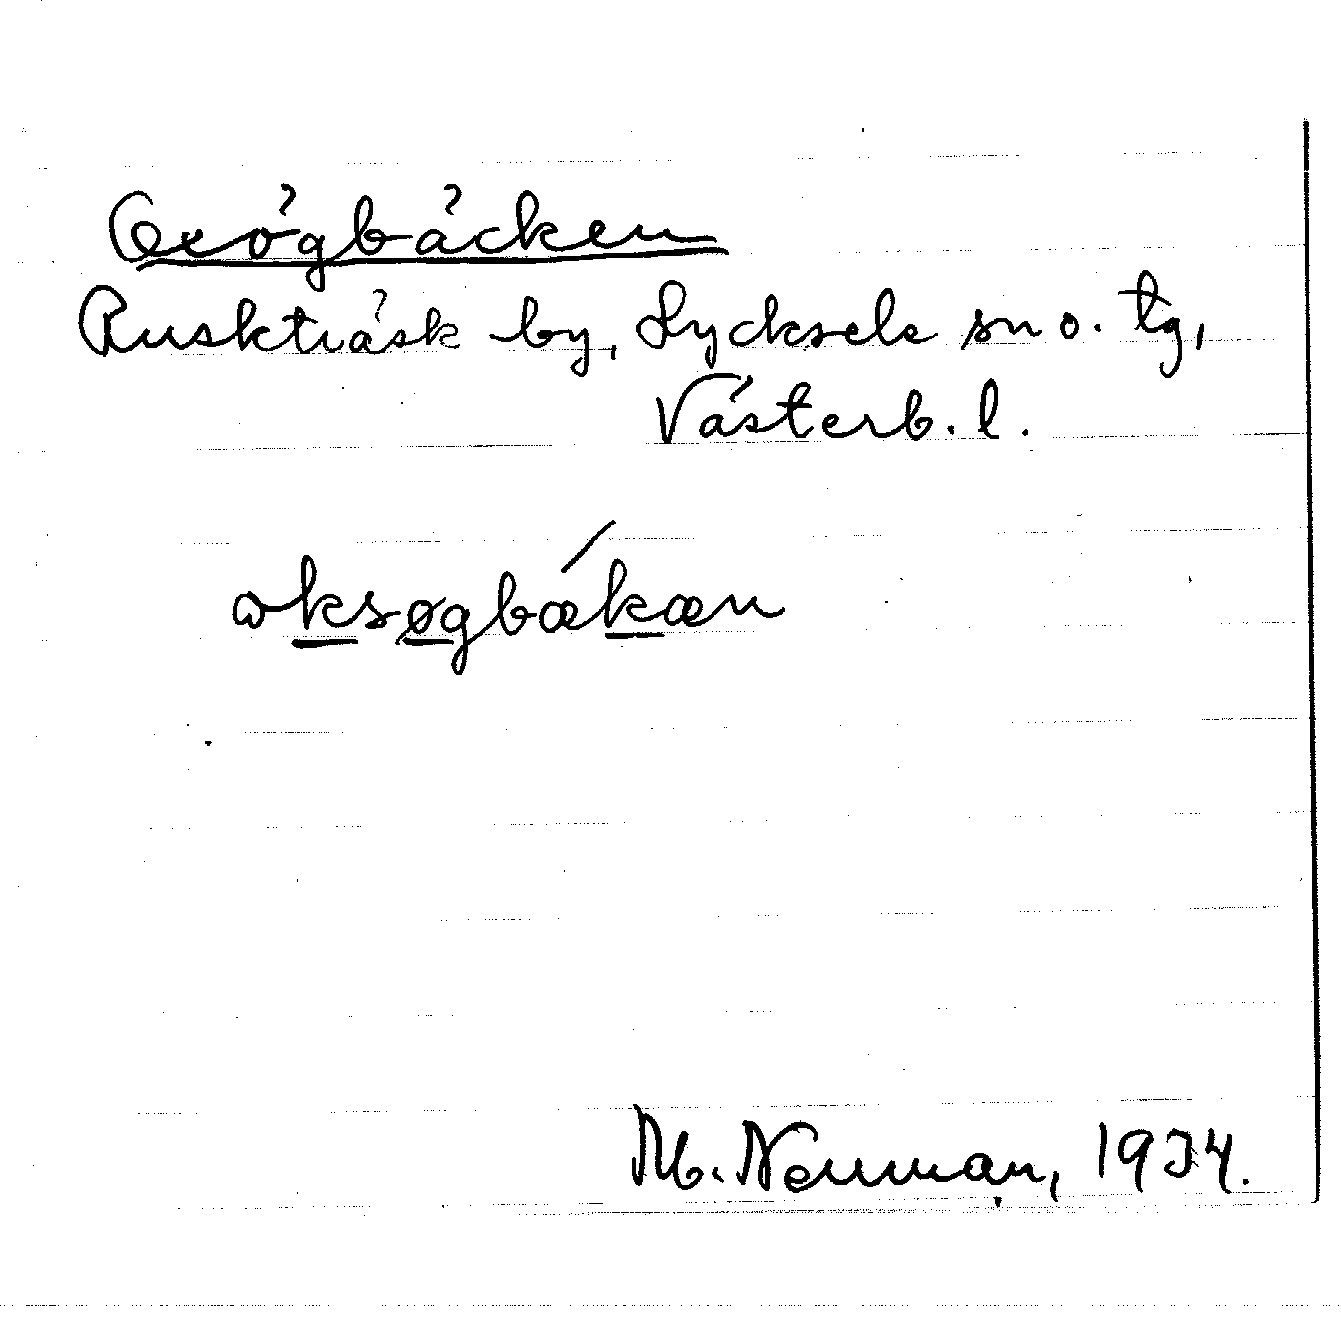 Oxögbäcken
Ruskträsk by, Lycksele sn o. tg,
Västerb. l.
ωksøgbækæn
M. Neuman, 1934.